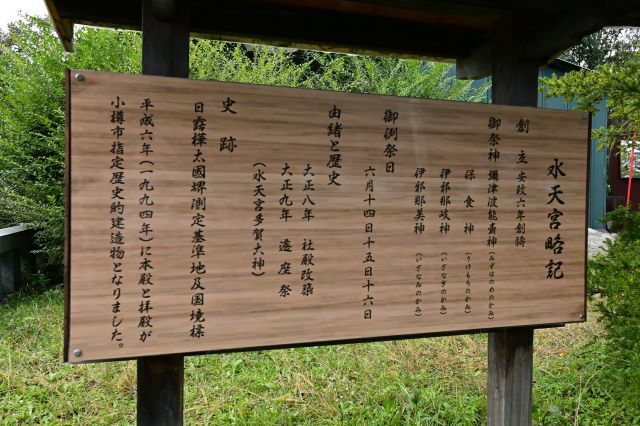 水天宮略記
創立 安政六年創祷
御祭神 彌津波能賣神(みずはのめのかみ)
保食神(うけもちのかみ)
伊邪那岐神(いざなぎのかみ)
伊邪那美神(いざなみのかみ)
御例祭日
六月十四日十五日十六日
由緒と歴史
大正八年 社殿改築
大正九年 遷座祭
(水天宮多賀大神)
史跡
日露樺太國堺測定基準地及国境標
平成六年(一九九四年)に本殿と拝殿が
小樽市指定歴史的建造物となりました。